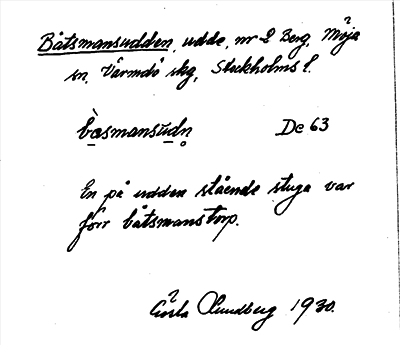 Båtsmansudden, udde, nr 2 Berg, Möja
sn, Värmdö skg, Stockholms l.
bòsmansùdn̥ De 63
En på udden stående stuga var
förr båtsmanstorp.
Gösta Lundberg 1930.